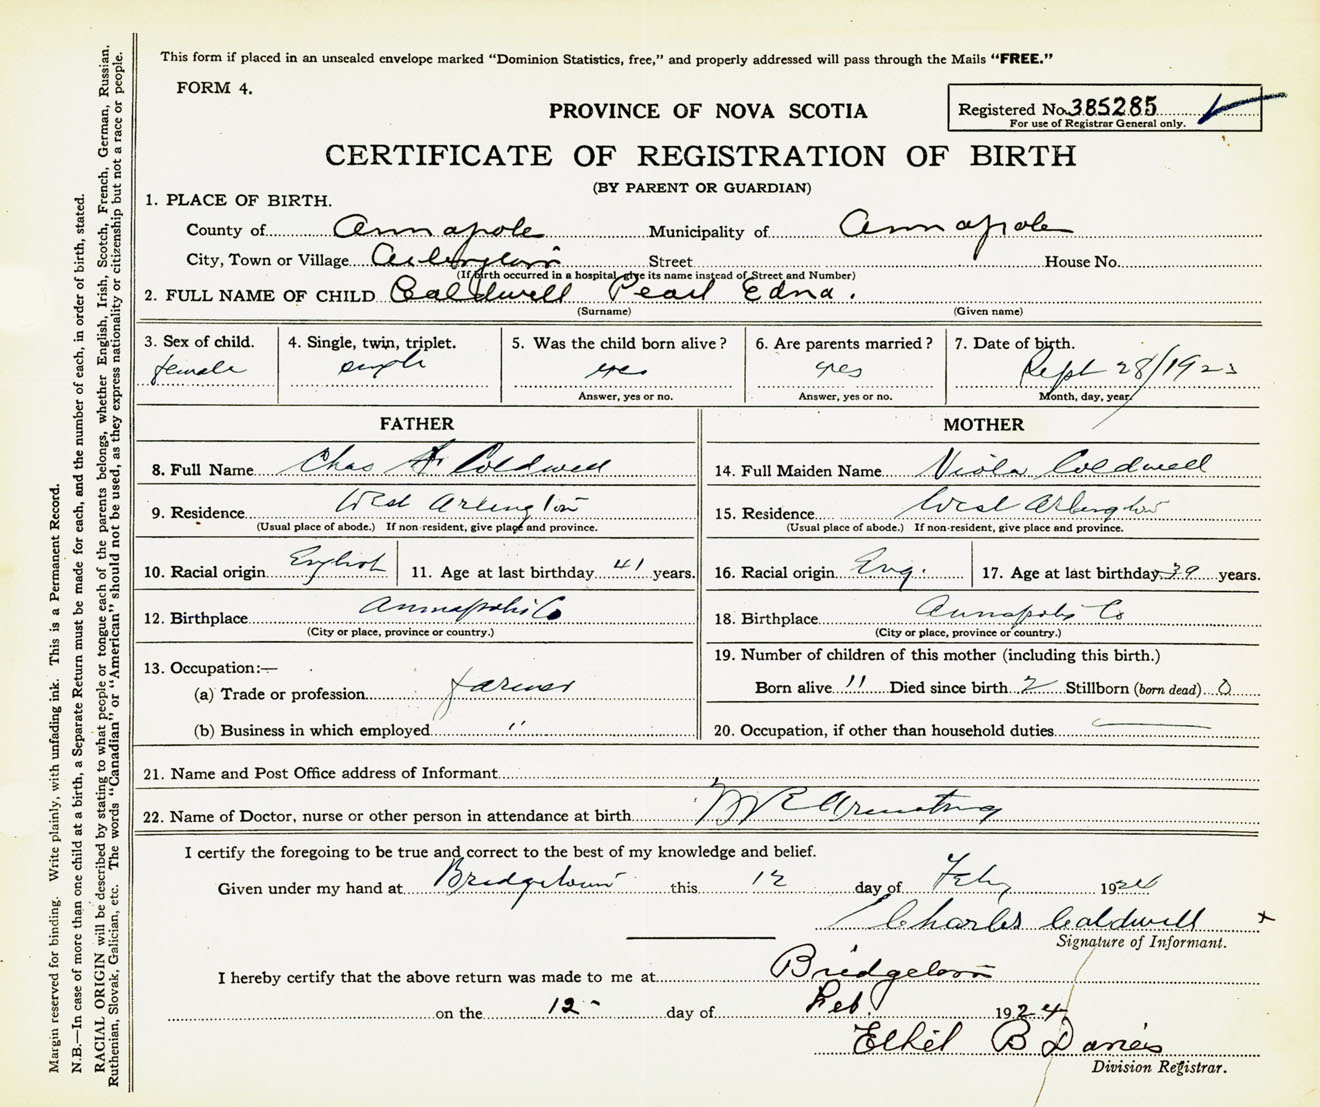 This form if placed in an unsealed envelope marked "Dominion Statistics, free," and properly addressed will pass through the Mails "FREE."
FORM 4.
PROVINCE OF NOVA SCOTIA
Registered No. 385285
For use of Registrar General only.
CERTIFICATE OF REGISTRATION OF BIRTH
(BY PARENT OR GUARDIAN)
1. PLACE OF BIRTH.
County of Annapole Municipality of Annapole
City, Town or Village Street House No.
(If birth occurred in a hospital give its name instead of Street and Number)
2. FULL NAME OF CHILD Caldwell Pearl Edna.
(Surname) (Given name)
3. Sex of child. 4. Single, twin, triplet. 5. Was the child born alive? 6. Are parents married? 7. Date of birth.
female single yes yes Sept 28/1923
Answer, yes or no. Answer, yes or no. Month, day, year.
FATHER MOTHER
8. Full Name Chas Coldwell 14. Full Maiden Name Viola Coldwell
9. Residence West Arlington 15. Residence West Arlington
(Usual place of abode.) If non-resident, give place and province. (Usual place of abode.) If non-resident, give place and province.
10. Racial origin English 11. Age at last birthday 41 years. 16. Racial origin Eng. 17. Age at last birthday 39 years.
12. Birthplace Annapolis Co 18. Birthplace Annapolis Co
(City or place, province or country.) (City or place, province or country.)
13. Occupation:— 19. Number of children of this mother (including this birth.)
(a) Trade or profession farmer Born alive 11 Died since birth 2 Stillborn (born dead) 0
(b) Business in which employed " 20. Occupation, if other than household duties
21. Name and Post Office address of Informant
22. Name of Doctor, nurse or other person in attendance at birth Armstrong
I certify the foregoing to be true and correct to the best of my knowledge and belief.
Given under my hand at Bridgetown this 12 day of Feby 1924
Charles Caldwell x
Signature of Informant.
I hereby certify that the above return was made to me at Bridgetown
on the 12- day of Feb. 1924
Ethel B Davies
Division Registrar.
Margin reserved for binding. Write plainly, with unfading ink. This is a Permanent Record.
N.B.—In case of more than one child at a birth, a Separate Return must be made for each, and the number of each, in order of birth, stated.
RACIAL ORIGIN will be described by stating to what people or tongue each of the parents belongs, whether English, Irish, Scotch, French, German, Russian,
Ruthenian, Slovak, Galician, etc. The words "Canadian" or "American" should not be used, as they express nationality or citizenship but not a race or people.